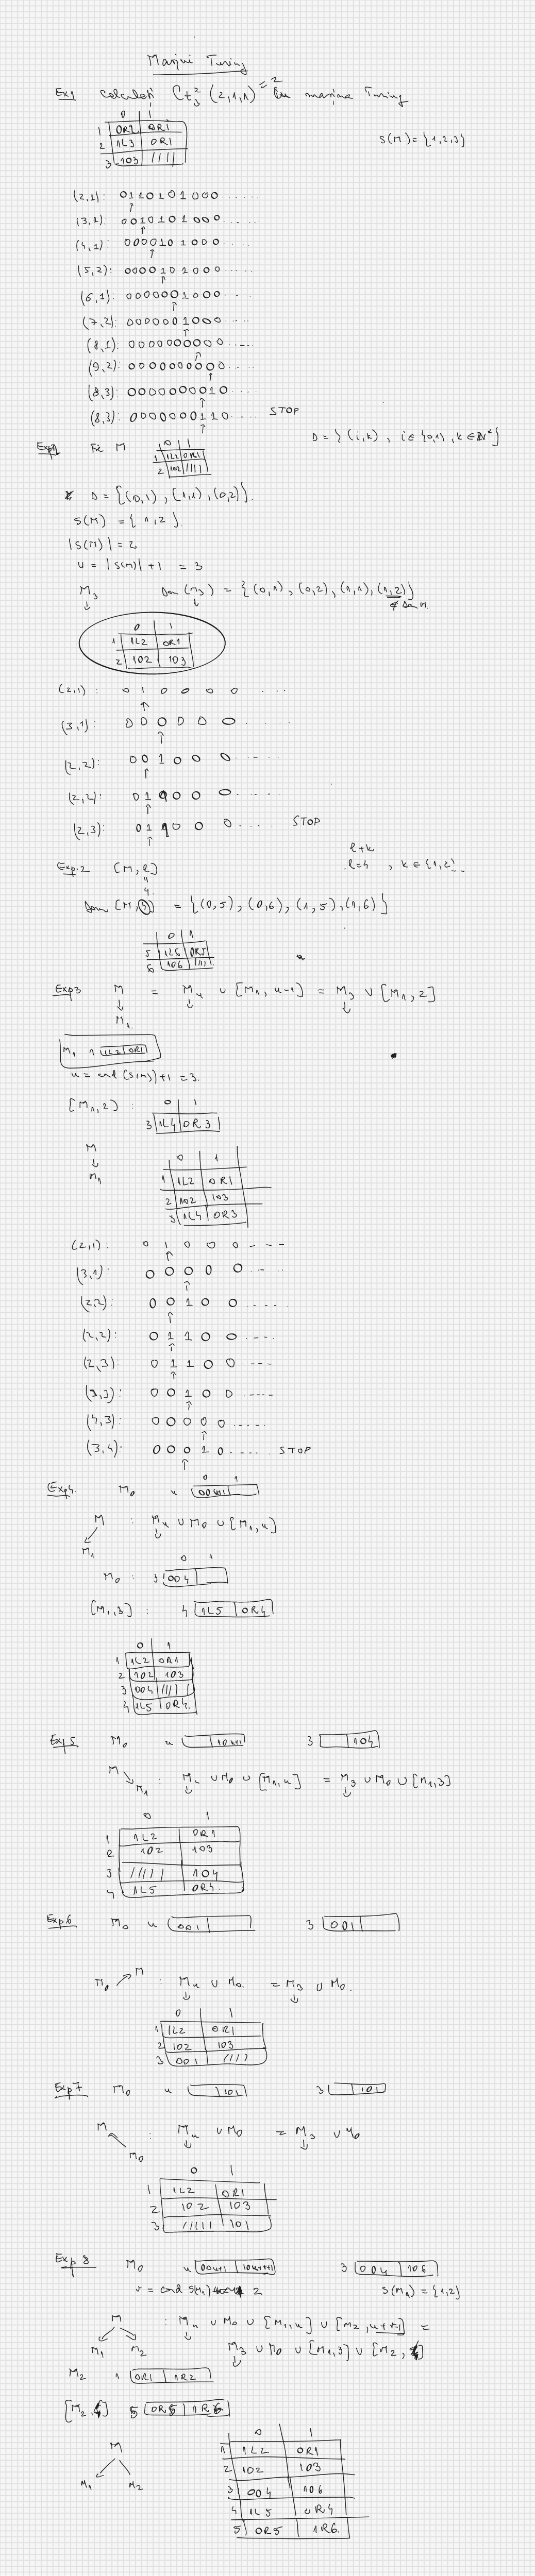 Mașini Turing
Ex1 Calculați Ct²₃ (2,1,1) = 2 cu mașina Turing
0 1
1 0R2 0R1
2 1L3 0R1
3 103 ////
S(M) = {1,2,3}
(2,1): 0110101000......
↑
(3,1): 0010101000......
↑
(4,1): 0000101000......
↑
(5,2): 0000101000......
↑
(6,1): 0000001000......
↑
(7,2): 0000001000......
↑
(8,1): 0000000000......
↑
(9,2): 0000000000......
↑
(8,3): 0000000010......
↑
(8,3): 0000000110...... STOP
↑
D = {(i,k), i ∈ {0,1}, k ∈ N*}
Fie M
0 1
1 1L2 0R1
2 102 ////
D = {(0,1), (1,1), (0,2)}.
S(M) = {1,2}.
|S(M)| = 2
u = |S(M)| + 1 = 3
M₃ Dom (M₃) = {(0,1), (0,2), (1,1), (1,2)}
↓ ↓ ∉ Dom M.
0 1
1 1L2 0R1
2 102 103
(2,1): 0 1 0 0 0 0 ....
↑
(3,1): 0 0 0 0 0 0 ......
↑
(2,2): 0 0 1 0 0 0 ......
↑
(2,2): 0 1 1 0 0 0 ......
↑
(2,3): 0 1 1 0 0 0 ...... STOP
↑
l+k
Exp.2 [M, l] l=4, k ∈ {1,2}..
"
4.
Dom [M,4] = {(0,5), (0,6), (1,5), (1,6)}
0 1
5 1L6 0R5
6 106 ////
Exp3 M = Mᵤ ∪ [M₁, u-1] = M₃ ∪ [M₁,2]
↓ ↓ ↓
M₁
M₁ 1 1L2 0R1
u = card (S(M)) + 1 = 3.
[M₁,2]: 0 1
3 1L4 0R3
M
↓
M₁
0 1
1 1L2 0R1
2 102 103
3 1L4 0R3
(2,1): 0 1 0 0 0 - - - -
↑
(3,1): 0 0 0 0 0 - ...
↑
(2,2): 0 0 1 0 0 - - - ...
↑
(2,2): 0 1 1 0 0 - ...
↑
(2,3): 0 1 1 0 0 ......
↑
(3,3): 0 0 1 0 0 ......
↑
(4,3): 0 0 0 0 0 ......
↑
(3,4): 0 0 0 1 0 ...... STOP
↑
0 1
Exp4. M₀ u 00u+1
M : Mᵤ ∪ M₀ ∪ [M₁,u]
↙ ↓
M₁ 0 1
M₀: 3 004
[M₁,3]: 4 1L5 0R4
0 1
1 1L2 0R1
2 102 103
3 004 ////
4 1L5 0R4.
Exp5 M₀ u 10u+1 3 104
M ↘ M₁ : Mᵤ ∪ M₀ ∪ [M₁,u] = M₃ ∪ M₀ ∪ [M₁,3]
↓ ↓
0 1
1 1L2 0R1
2 102 103
3 ///// 104
4 1L5 0R4.
Exp.6 M₀ u 001 3 001
M₀ ↗ M : Mᵤ ∪ M₀. = M₃ ∪ M₀.
↓ ↓
0 1
1 1L2 0R1
2 102 103
3 001 ////
Exp7 M₀ u 101 3 101
M ↖ M₀ : Mᵤ ∪ M₀ = M₃ ∪ M₀
↓ ↓
0 1
1 1L2 0R1
2 102 103
3 ///// 101
Exp 8 M₀ u 00u+1 10u+r+1 3 004 106
r = card S(M₁) 2 S(M₁) = {1,2}
M : Mᵤ ∪ M₀ ∪ [M₁,u] ∪ [M₂,u+r] =
↙ ↘ ↓
M₁ M₂ M₃ ∪ M₀ ∪ [M₁,3] ∪ [M₂,
↓
M₂ 1 0R1 1R2
[M₂, 5 0R5 1R6
M
↙ ↘
M₁ M₂
0 1
1 1L2 0R1
2 102 103
3 004 106
4 1L5 0R4
5 0R5 1R6.